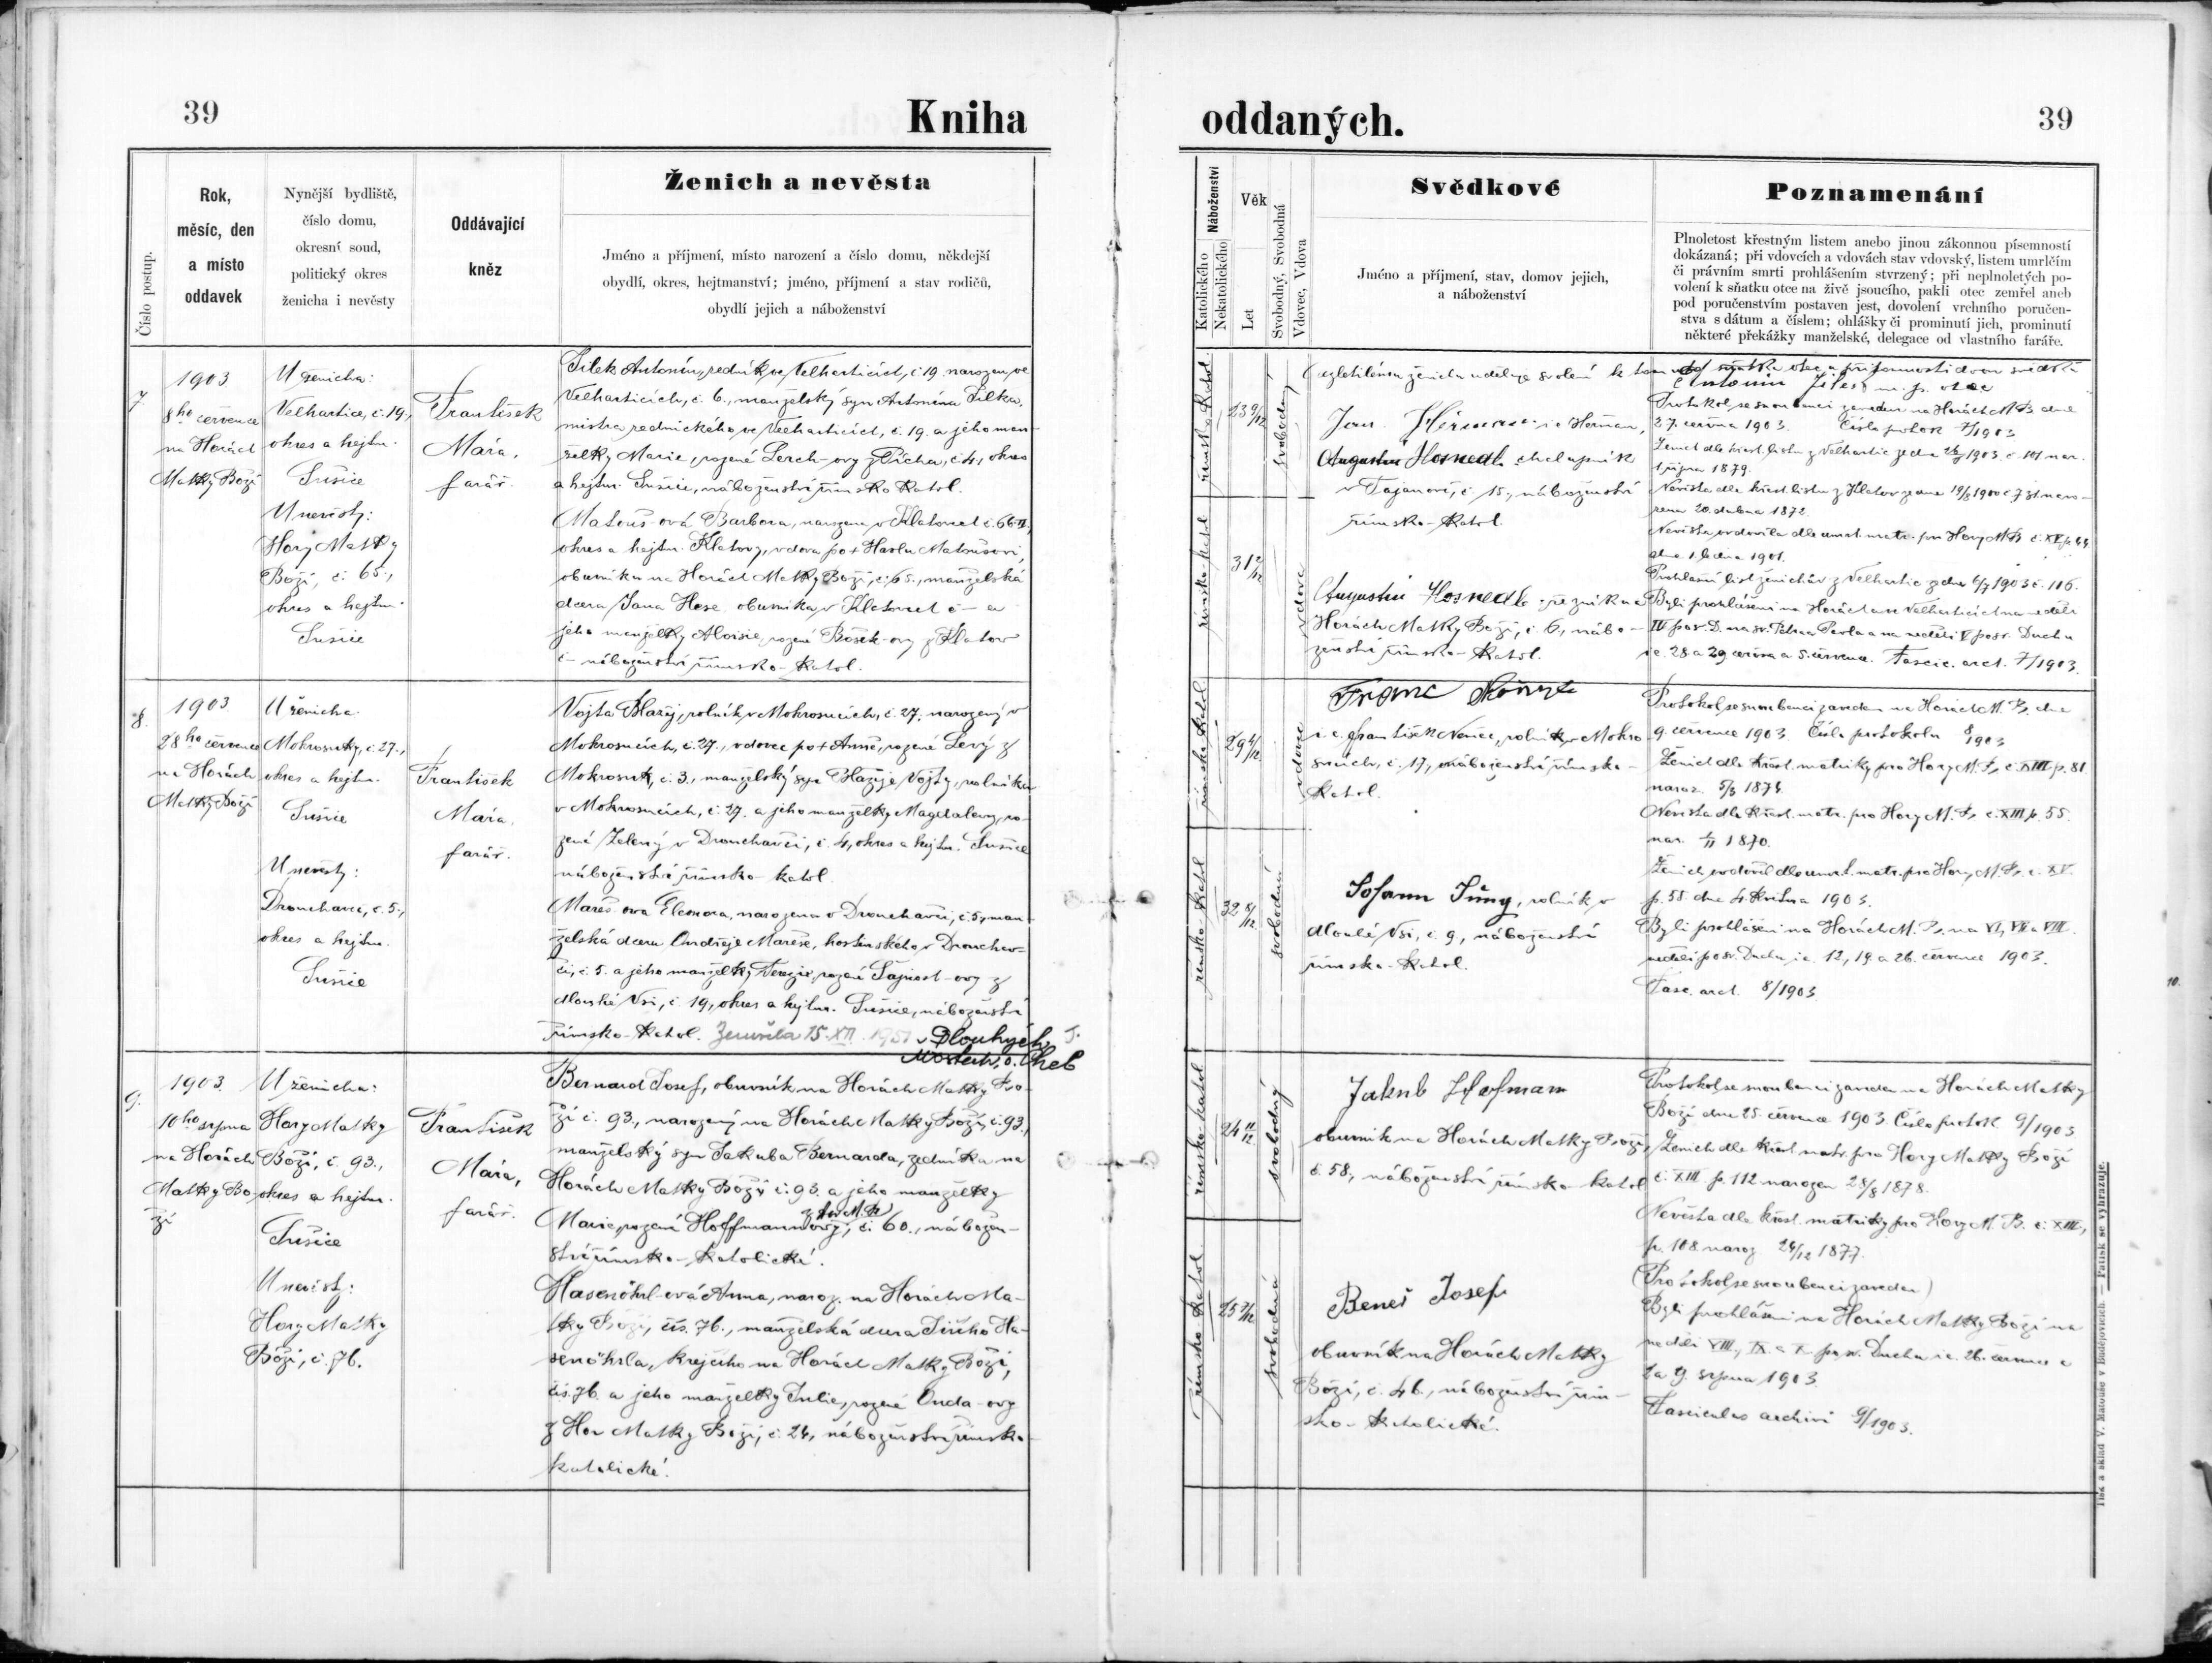 39
Kniha
Číslo postup.
Rok,
měsíc, den
a místo
oddavek
Nynější bydliště,
číslo domu,
okresní soud,
politický okres
ženicha i nevěsty
Oddávající
kněz
Ženich a nevěsta
Jméno a příjmení, místo narození a číslo domu, někdejší
obydlí, okres, hejtmanství; jméno, příjmení a stav rodičů,
obydlí jejich a náboženství
7
1903
8ho července
na Horách
Matky Boží
U ženicha:
Velhartice, č. 19,
okres a hejtm.
Sušice
U nevěsty:
Hory Matky
Boží, č. 65.,
okres a hejtm.
Sušice
František
Mára,
farář.
Antonín, ve Velharticích, č 19 narozen ve
Velharticích, č. 6., manželský syn Antonína
mistra ve Velharticích, č. 19. a jeho man-
želky Marie, rozené Lerch-ovy z č. 4, okres
a hejtm. Sušice, náboženství římsko katol.
Matouš-ová Barbora, narozena v Klatovech č. 66 II,
okres a hejtm. Klatovy, vdova po + Havlu Matoušovi,
obuvníku na Horách Matky Boží, č. 65., manželská
dcera Jana obuvníka v Klatovech č – a
jeho manželky Aloisie, rozené z Klatov
č – náboženství římsko-katol.
8.
1903
28ho července
na Horách
Matky Boží
U ženicha
Mokrosuky, č. 27.,
okres a hejtm.
Sušice
U nevěsty:
Drouhavec, č. 5.,
okres a hejtm.
Sušice
František
Mára,
farář.
Vojta Blažej, rolník v Mokrosucích, č. 27, narozený v
Mokrosucích, č. 27., vdovec po + Anně, rozené Levý z
Mokrosuk, č. 3., manželský syn Blažeje Vojty, rolníka
v Mokrosucích, č. 27. a jeho manželky Magdaleny, ro-
zené Zelený v Drouhavči, č. 4, okres a hejtm. Sušice
náboženství římsko-katol.
Mareš-ova Eleonora, narozena v Drouhavči, č 5, man-
želská dcera Ondřeje Mareše, hostinského v Drouhav-
či, č. 5. a jeho manželky Terezie, rozené z
Dlouhé Vsi, č. 19, okres a hejtm. Sušice, náboženství
římsko-katol. Zemřela 15. XII. 1951 v Dlouhých
Mostech, o. Cheb
9.
1903.
10ho srpna
na Horách
Matky Bo-
ží
U ženicha:
Hory Matky
Boží, č. 93.,
okres a hejtm.
Sušice
U nevěsty:
Hory Matky
Boží, č. 76.
František
Mára,
farář.
Bernard Josef, obuvník na Horách Matky Bo-
ží č. 93., narozený na Horách Matky Boží, č. 93.,
manželský syn Jakuba Bernarda, zedníka na
Horách Matky Boží č. 93. a jeho manželky
Marie, rozené Hoffmannovy, z Hor M. B. č. 60., nábožen-
ství římsko-katolické.
Hasenöhrl-ová Anna, naroz. na Horách Ma-
tky Boží, čís. 76., manželská dcera Jiřího Ha-
senöhrla, krejčího na Horách Matky Boží,
čís. 76. a jeho manželky Julie, rozené Onda-ovy
z Hor Matky Boží, č. 24, náboženství římsko-
katolické.
oddaných.
39
Náboženství
Katolického
Nekatolického
Věk
Let
Svobodný, Svobodná
Vdovec, Vdova
Svědkové
Jméno a příjmení, stav, domov jejich,
a náboženství
Poznamenání
Plnoletost křestným listem anebo jinou zákonnou písemností
dokázaná; při vdovcích a vdovách stav vdovský, listem umrlčím
či právním smrti prohlášením stvrzený; při neplnoletých po-
volení k sňatku otce na živě jsoucího, pakli otec zemřel aneb
pod poručenstvím postaven jest, dovolení vrchního poručen-
stva s dátum a číslem; ohlášky či prominutí jich, prominutí
některé překážky manželské, delegace od vlastního faráře.
římsko katol.
23 9/12
svobodný
Nezletilému ženichu uděluje svolení k tomuto sňatku otec v přítomnosti dvou svědků
Antonín m. p. otec
Jan i. e. Heřman,
Augustin Hosnedl chalupník
v Tajanově, č. 15., náboženství
římsko-katol.
římsko-katol
31 2/12
vdova
Augustin Hosnedl řezník na
Horách Matky Boží, č. 6., nábo-
ženství římsko-katol.
Protokol se snoubenci zaveden na Horách M. B. dne
27. června 1903. Číslo protok 7/1903
Ženich dle křest. listu z Velhartic ze dne 1903 č. 101 nar.
října 1879.
Nevěsta dle křest. listu z Klatov ze dne naro-
zena 20. dubna 1872.
Nevěsta ovdověla dle umrl. matr. pro Hory M. B. č. XV p. 44
dne 1901.
Prohlášní list ženichův z Velhartic ze dne 6/7 1903 č. 116.
Byli prohlášeni na Horách a ve Velharticích na neděli
IV po sv. D. na sv. Petra a Pavla a na neděli V po sv. Duchu
i. e. 28. a 29 června a 5. července. Fascic. arch. 7/1903.
římsko katol
29 4/12
vdovec
Franc
i. e. František Němec, rolník v Mokro-
sucích, č. 17, náboženství římsko-
katol.
římsko-katol
32 8/12
svobodná
Johann Jung, rolník v
Dlouhé Vsi, č. 9, náboženství
římsko-katol.
Protokol se snoubenci zaveden na Horách M. B. dne
9. července 1903. Číslo protokolu 8/1903
Ženich dle křest. matriky pro Hory M. B. č. XIII p. 81
naroz. 5/3 1874.
Nevěsta dle křest. matr. pro Hory M. B. č. XIII p. 55.
nar. 1870.
Ženich ovdověl dle umrl. matr. pro Hory M. B. č. XV.
p. 55 dne 4. května 1903.
Byli prohlášeni na Horách M. B. na VI, VII a VIII.
neděli po sv. Duchu i. e. 12, 19. a 26. července 1903.
Fasc. arch. 8/1903.
římsko-katol
24 11/12
svobodný
Jakub Hofmann
obuvník na Horách Matky Boží,
č. 58, náboženství římsko-katol
římsko katol.
25 7/12
svobodná
Beneš Josef
obuvník na Horách Matky
Boží, č. 46., náboženství řím-
sko-katolické.
Protokol se snoubenci zaveden na Horách Matky
Boží dne 25. července 1903. Číslo protok 9/1903
Ženich dle křest. matr. pro Hory Matky Boží
č. XIII p. 112 narozen 28/8 1878.
Nevěsta dle křest. matriky pro Hory M. B. č. XIII,
p. 108 naroz. 24/12 1877.
(Protokol se snoubenci zaveden)
Byli prohlášeni na Horách Matky Boží na
neděli VIII, IX a X po sv. Duchu i. e. 26. července a
2 a 9. srpna 1903.
Fasciculus archivi 9/1903.
Tisk a sklad V. Matouše v Budějovicích. — Patisk se vyhrazuje.